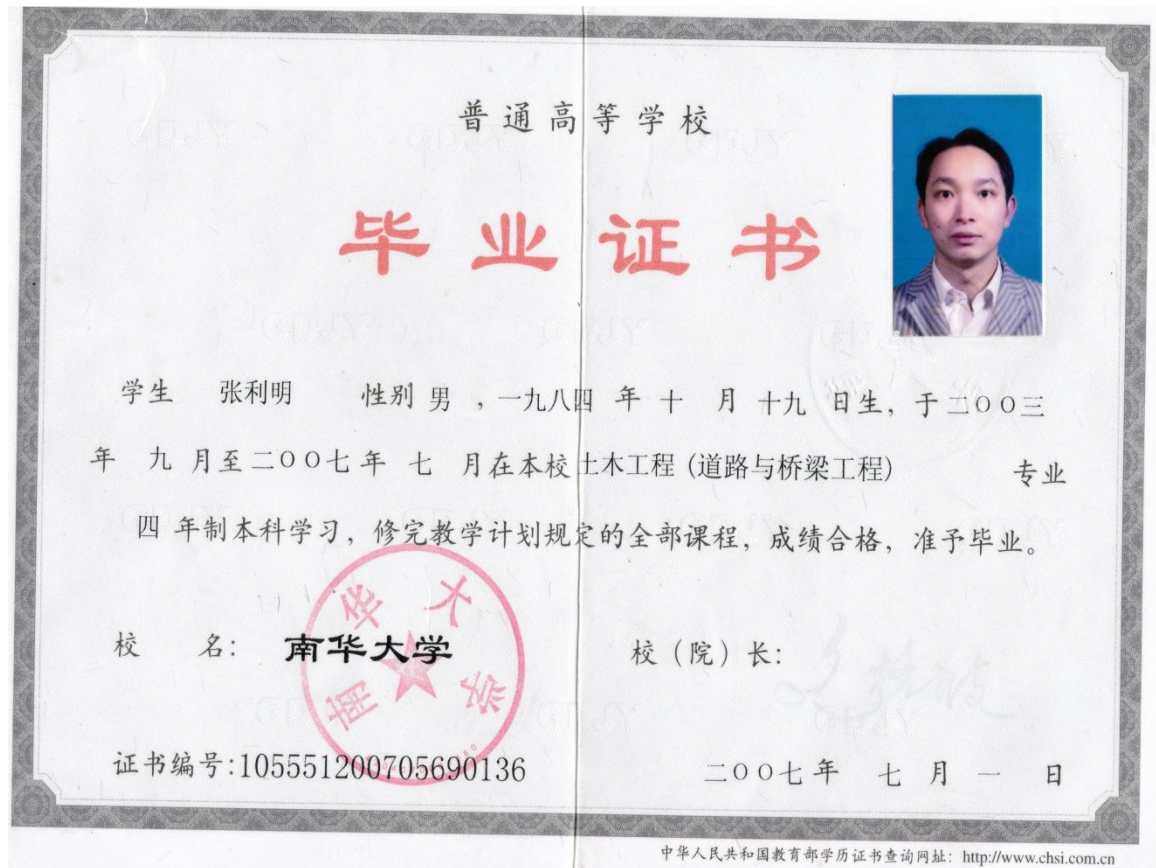 普通高等学校
毕业证书
学生 张利明 性别 男 ，一九八四 年 十 月 十九 日生，于 二〇〇三
年 九 月至 二〇〇七 年 七 月在本校 土木工程 (道路与桥梁工程) 专业
四 年制本科学习，修完教学计划规定的全部课程，成绩合格，准予毕业。
校 名： 南华大学
校（院）长：
南华大学
证书编号:105551200705690136
二〇〇七 年 七 月 一 日
中华人民共和国教育部学历证书查询网址：http://www.chsi.com.cn